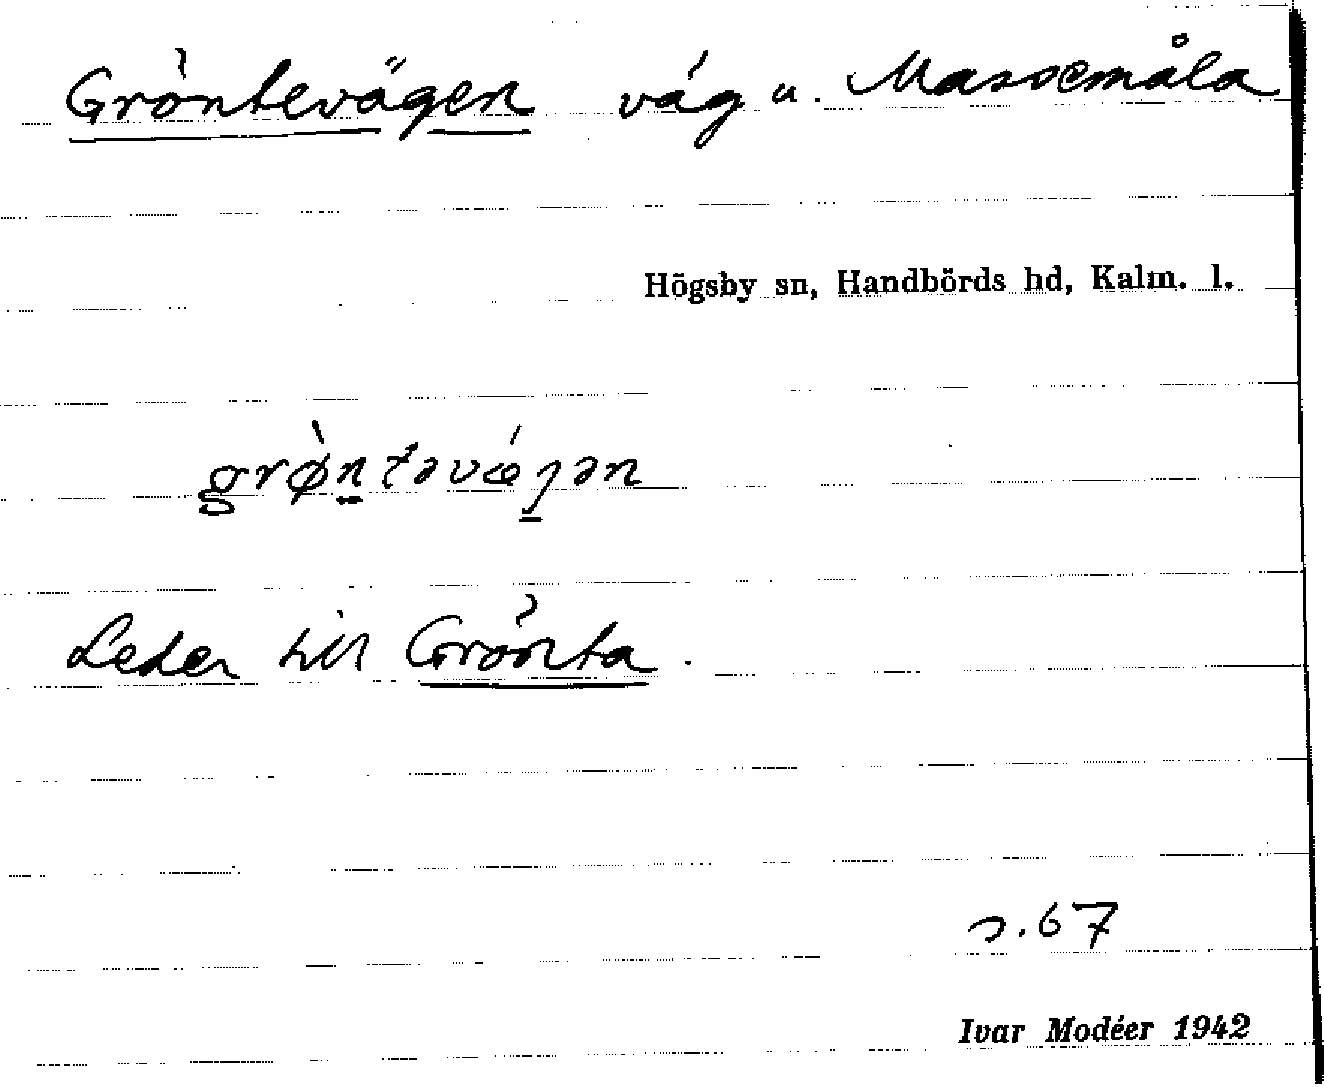 Gröntevägen väg u. Massemåla
Högsby sn, Handbörds hd, Kalm. l.
grø̀ntəvǽɡən
Leder till Grönta.
s. 67
Ivar Modéer 1942